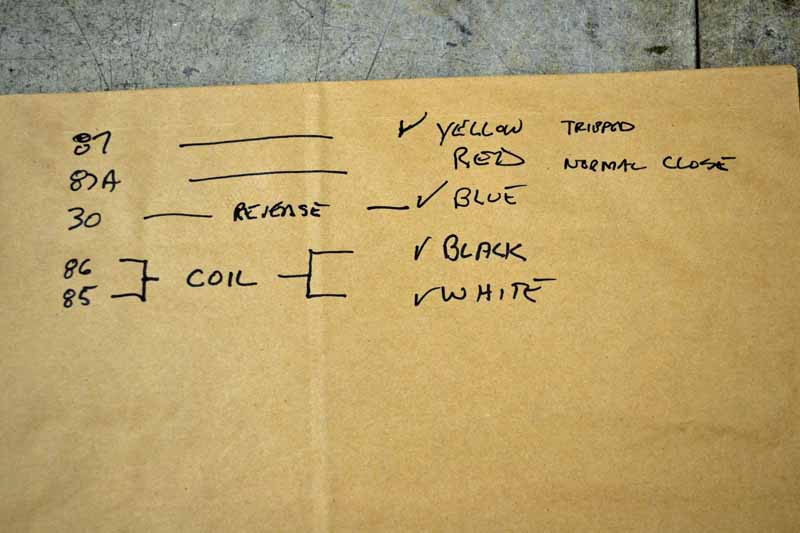 87 ✓ YELLOW TRIPPED
87A RED NORMAL CLOSE
30 RELEASE ✓ BLUE
86 ✓ BLACK
COIL
85 ✓ WHITE